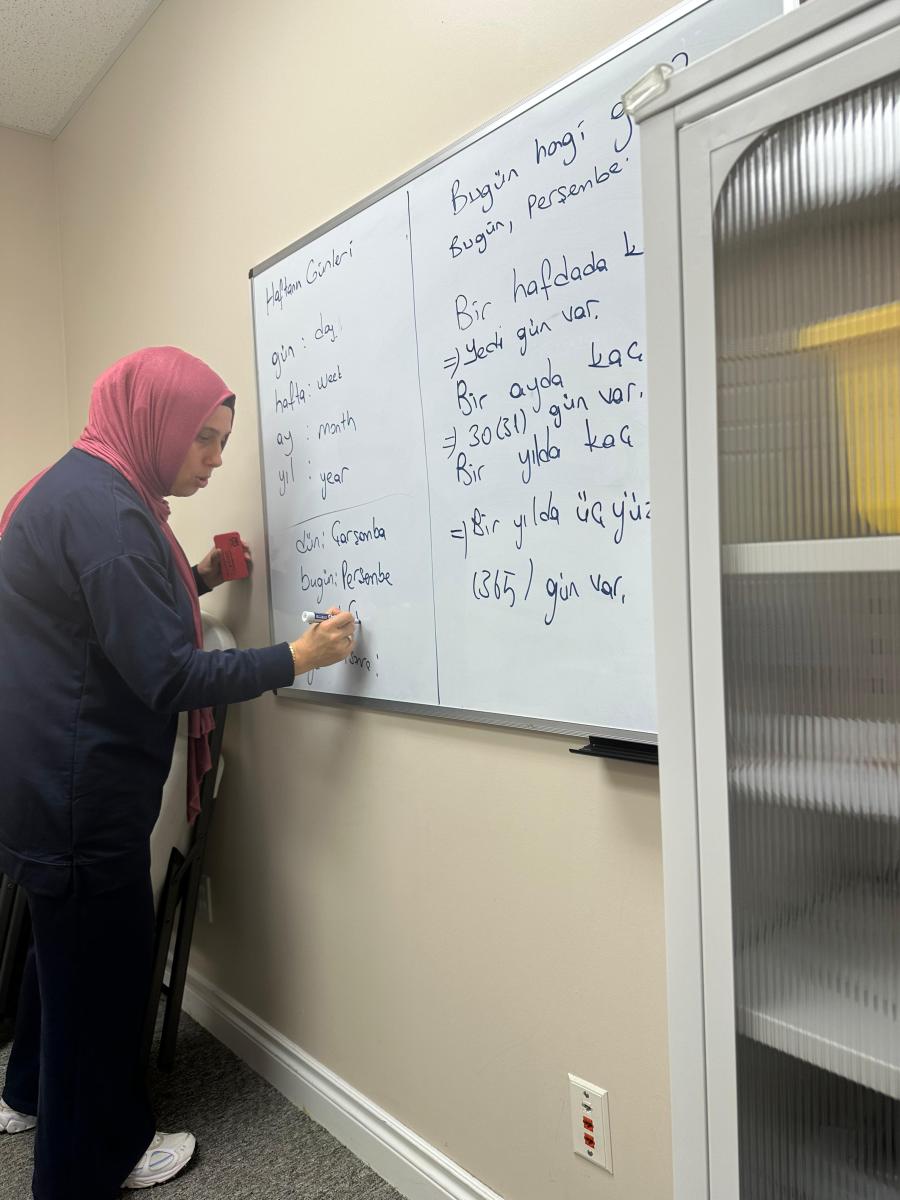 Haftanın Günleri
gün : day
hafta : week
ay : month
yıl : year
dün : Çarşamba
bugün : Perşembe
Bugün hangi
Bugün, Perşembe
Bir hafdada k
=> Yedi gün var.
Bir ayda kaç
=> 30(31) gün var.
Bir yılda kaç
=> Bir yılda üç yüz
(365) gün var.